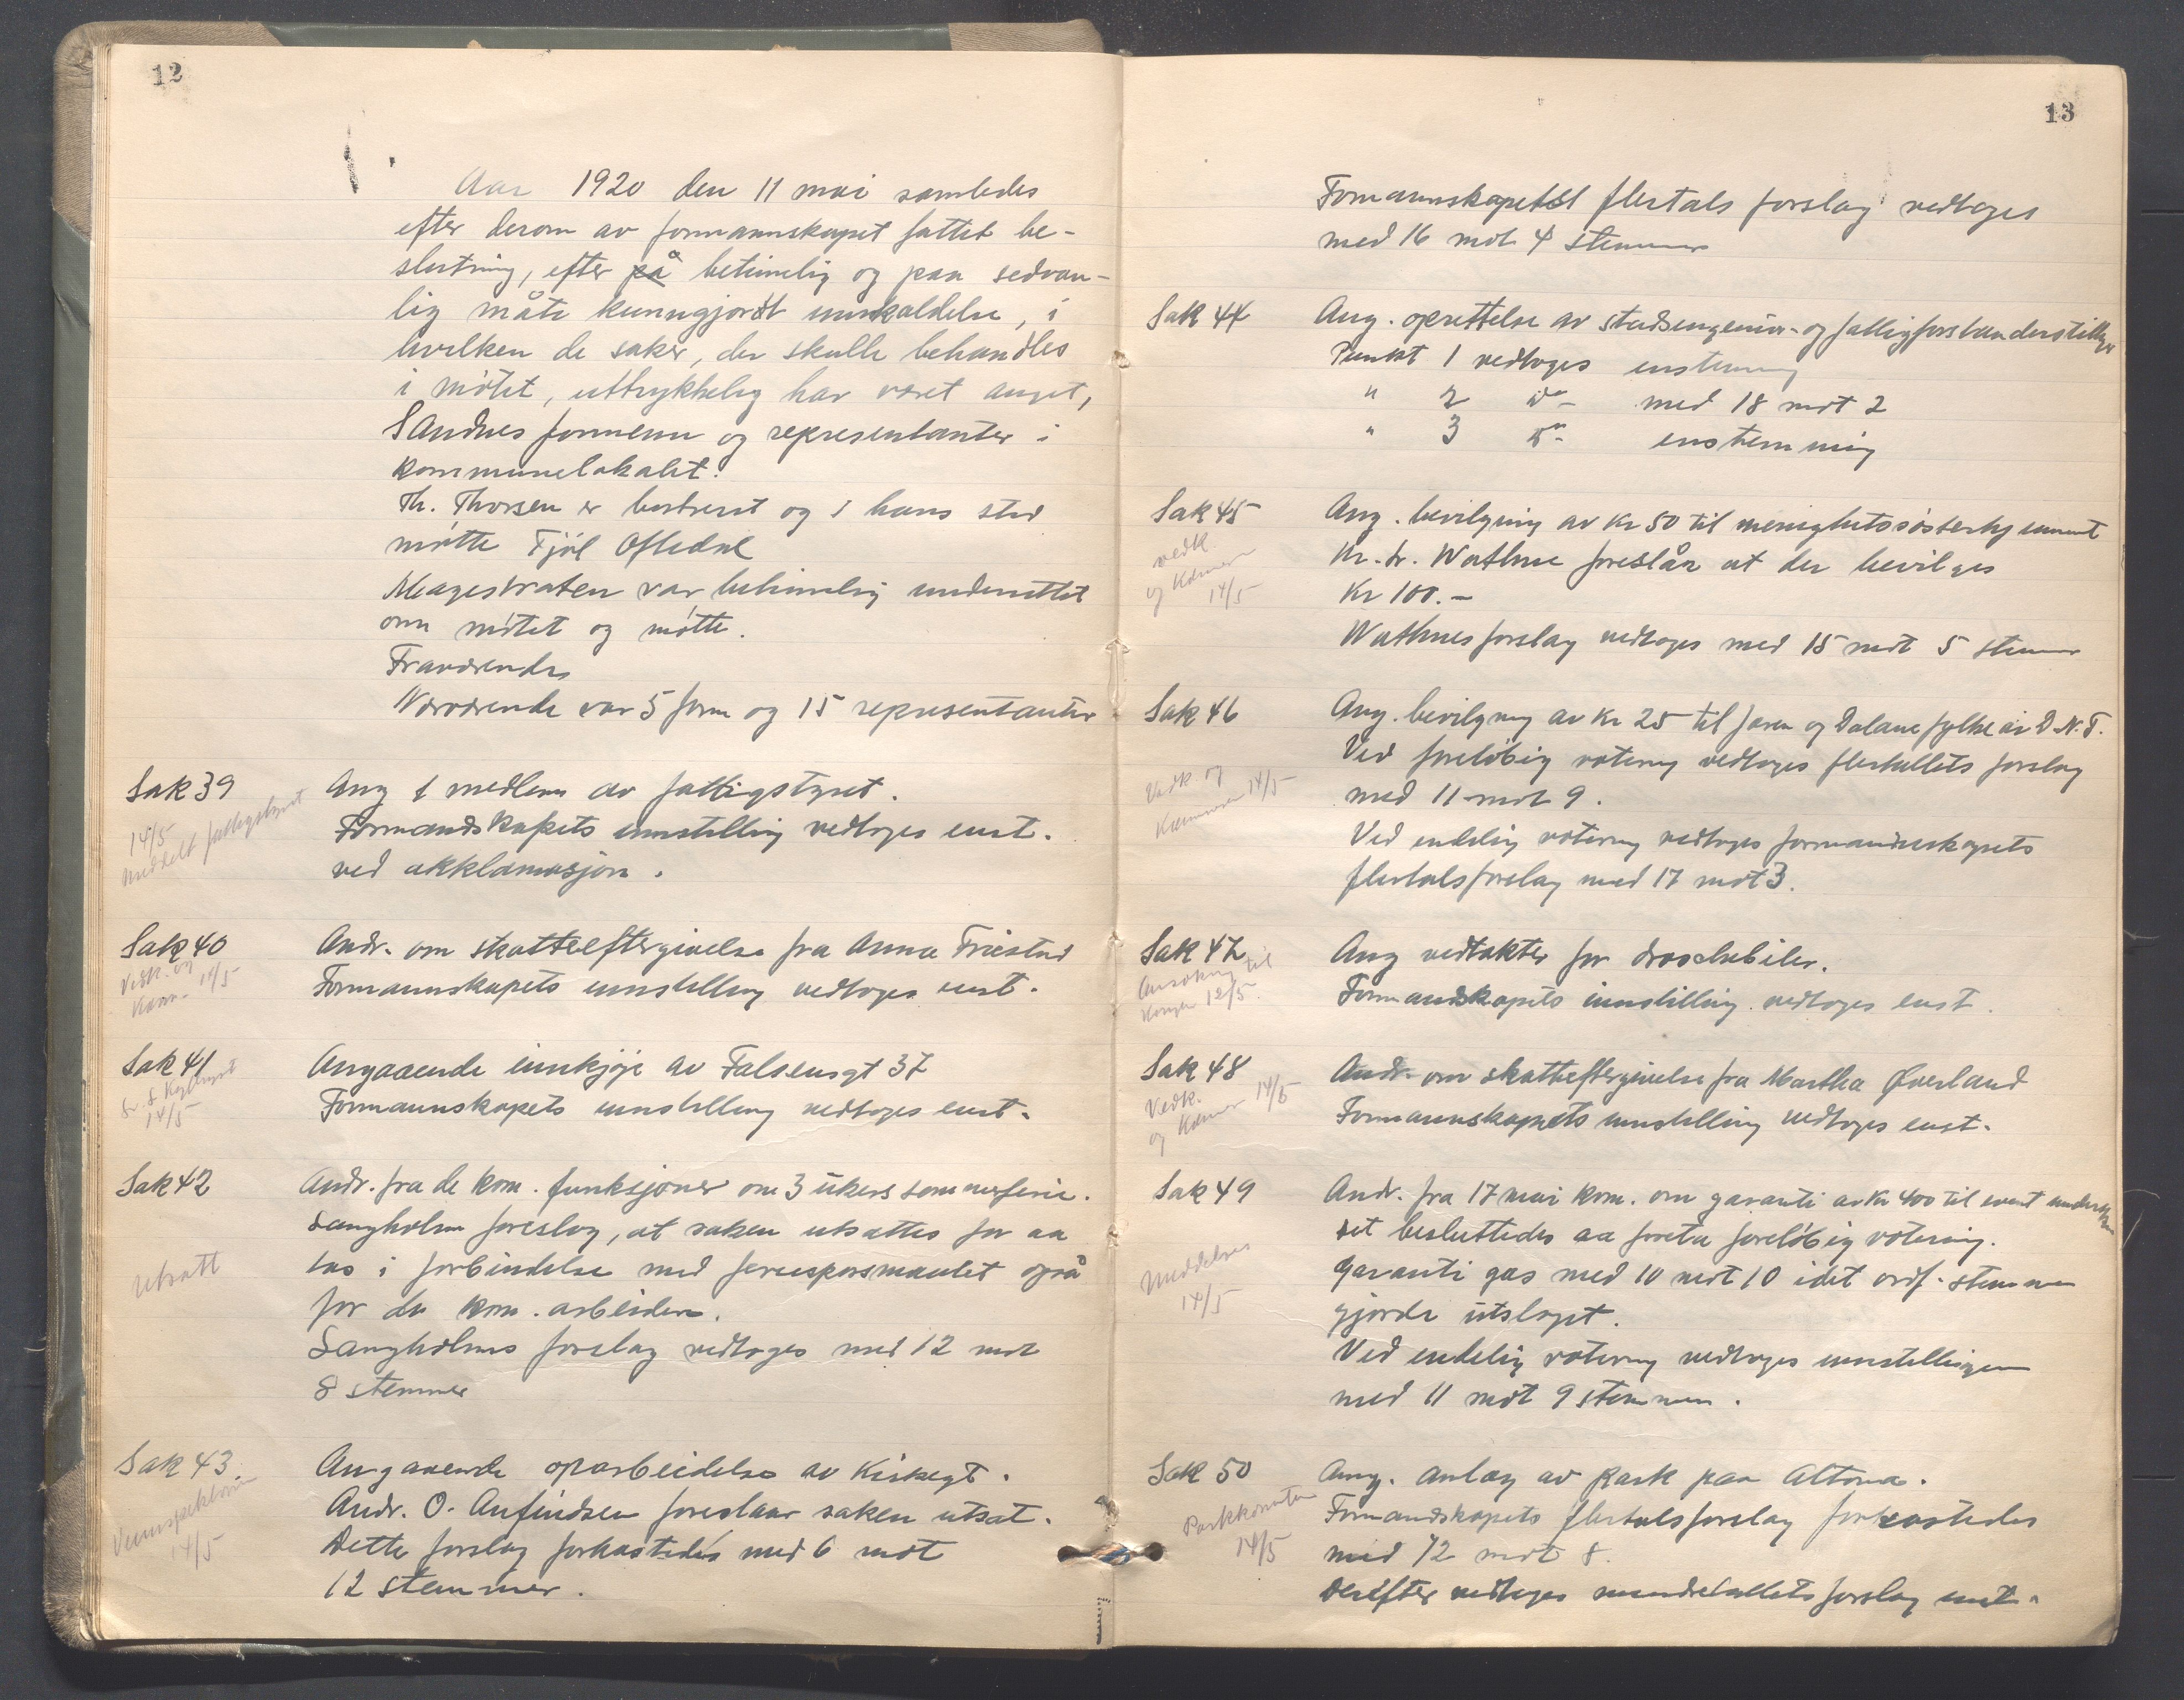 12
Aar 1920 den 11 mai samledes
efter derom av formannskapet fattet be-
slutning, efter på betimelig og paa sedvan-
lig måte kunngjordt innkaldelse, i
hvilken de saker, der skulle behandles
i møtet, uttrykkelig har været anget,
Sandnes formenn og representanter i
kommunelokalet.
Th. Thorsen er bortreist og i hans sted
møtte Fjøl Oftedal
Magestraten var betimelig underrettet
om møtet og møtte.
Fraværende
Nærværende var 5 form og 15 representanter
Sak 39
14/5
Meddelt fattigstyret
Ang 1 medlem av fattigstyret.
Formandskapets innstilling vedtoges enst.
ved akklamasjon.
Sak 40
Vedk. og
Kæm. 14/5
Andr. om skatteeftergivelse fra Anna Friestad
Formannskapets innstilling vedtoges enst.
Sak 41
14/5
Angaaende innkjøp av Falsensgt 37
Formannskapets innstilling vedtoges enst.
Sak 42
Utsatt
Andr. fra de kom. funksjoner om 3 ukers sommerferie.
Langholm foreslog, at saken utsattes for aa
tas i forbindelse med feriespørsmaalet også
for de kom. arbeidere.
Langholms forslag vedtoges med 12 mot
8 stemmer
Sak 43.
Veiinspektøren
14/5
Angaaende oparbeidelse av Kirkegt.
Andr. O. Anfindsen foreslaar saken utsat.
Dette forslag forkastedes med 6 mot
12 stemmer.
13
Formannskapets flertals forslag vedtoges
med 16 mot 4 stemmer
Sak 44
Ang. oprettelse av stadsengeniør- og fattigforstanderstilling
Punkt 1 vedtoges enstemmig
" 2 do- med 18 mot 2
" 3 do- enstemmig
Sak 45
vedk
og Kæmner
14/5
Ang. bevilgning av kr 50 til menighetssøsterhjemmet
Hr. Wathne foreslår at der bevilges
Kr 100.-
Wathnes forslag vedtoges med 15 mot 5 stemmer
Sak 46
Vedk og
Kæmneren 14/5
Ang. bevilgning av kr 25 til Jæren og Dalane fylke av D.N.T.
Ved foreløbig votering vedtoges flertallets forslag
med 11 mot 9.
Ved endelig votering vedtoges formandsskapets
flertalsforslag med 17 mot 3.
Sak 47
Ansøkning til
Kongen 12/5.
Ang vedtekter for droschebiler.
Formandskapets innstilling vedtoges enst.
Sak 48
Vedk.
og Kæmner 14/5
Andr. om skatteeftergivelse fra Martha Øverland
Formannskapets innstilling vedtoges enst.
Sak 49
Meddelres
14/5
Andr. fra 17 mai kom. om garanti av kr 400 til event undersk
Det besluttedes aa foreta foreløbig votering.
Garanti gas med 10 mot 10 idet ordf. stemme
gjorde utslaget.
Ved endelig votering vedtoges innstillingen
med 11 mot 9 stemmer.
Sak 50
Parkkomiteen
14/5
Ang. anlæg av park paa Altona.
Formandskapets flertalsforslag forkastedes
med 12 mot 8.
Derefter vedtoges mindretallets forslag enst.